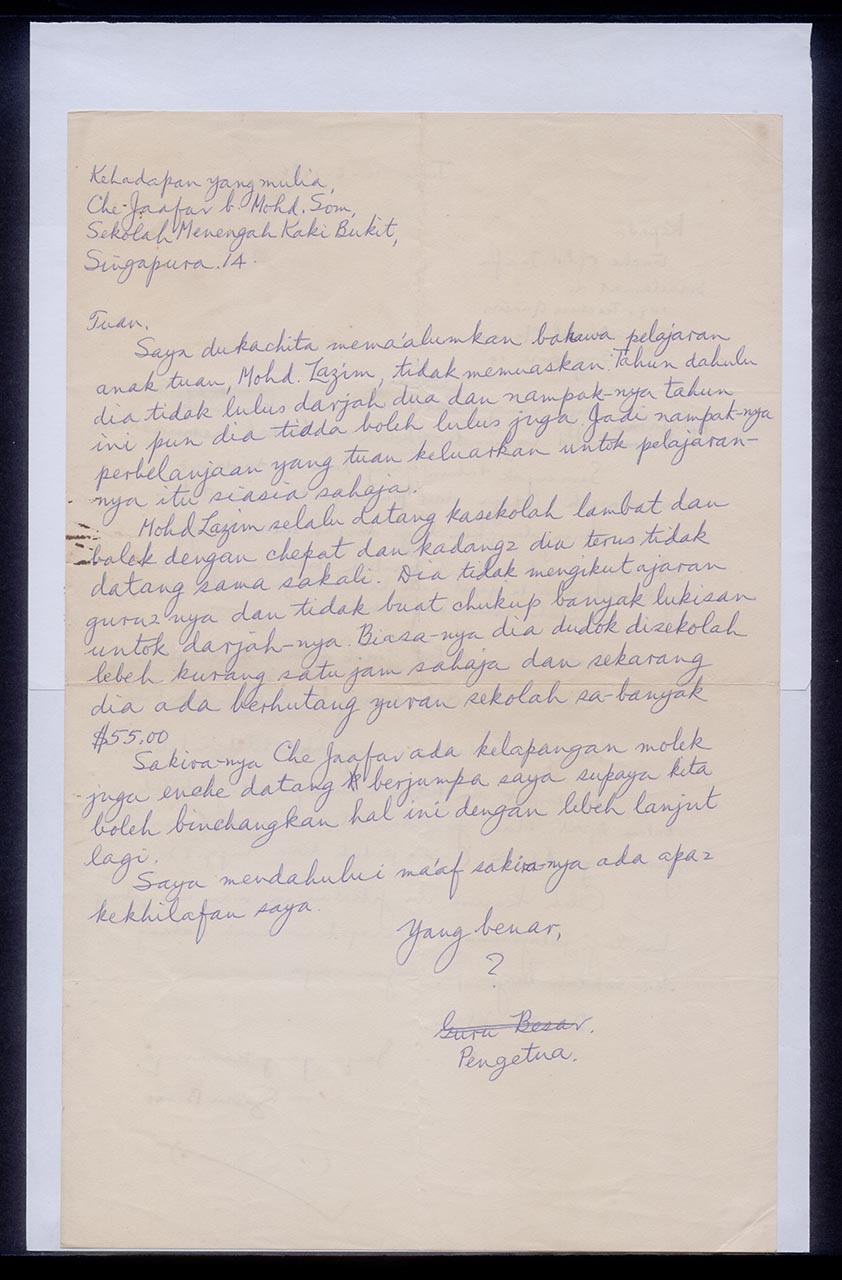 Kehadapan yang mulia,
Che Jaafar b. Mohd. Som,
Sekolah Menengah Kaki Bukit,
Singapura. 14.
Tuan.
Saya dukachita mema'alumkan bahawa pelajaran
anak tuan, Mohd. Lazim, tidak memuaskan. Tahun dahulu
dia tidak lulus darjah dua dan nampak-nya tahun
ini pun dia tidda boleh lulus juga. Jadi nampak-nya
perbelanjaan yang tuan keluarkan untok pelajaran-
nya itu siasia sahaja.
Mohd Lazim selalu datang kasekolah lambat dan
balek dengan chepat dan kadang2 dia terus tidak
datang sama sakali. Dia tidak mengikut ajaran
guru2-nya dan tidak buat chukup banyak lukisan
untok darjah-nya. Biasa-nya dia dudok disekolah
lebeh kurang satu jam sahaja dan sekarang
dia ada berhutang yuran sekolah sa-banyak
$55.00
Sakira-nya Che Jaafar ada kelapangan molek
juga enche datang berjumpa saya supaya kita
boleh binchangkan hal ini dengan lebeh lanjut
lagi.
Saya mendahului ma'af sakira-nya ada apa2
kekhilafan saya.
Yang benar,
?
Guru Besar.
Pengetua.